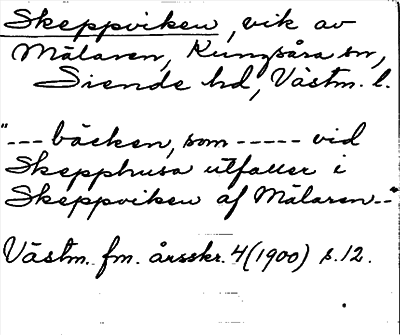 Skeppviken, vik av
Mälaren, Kungsåra sn,
Siende hd, Västm. l.
"--- bäcken, som ----- vid
Skepphusa utfaller i
Skeppviken af Mälaren--"
Västm. fm. årsskr. 4(1900) s.12.